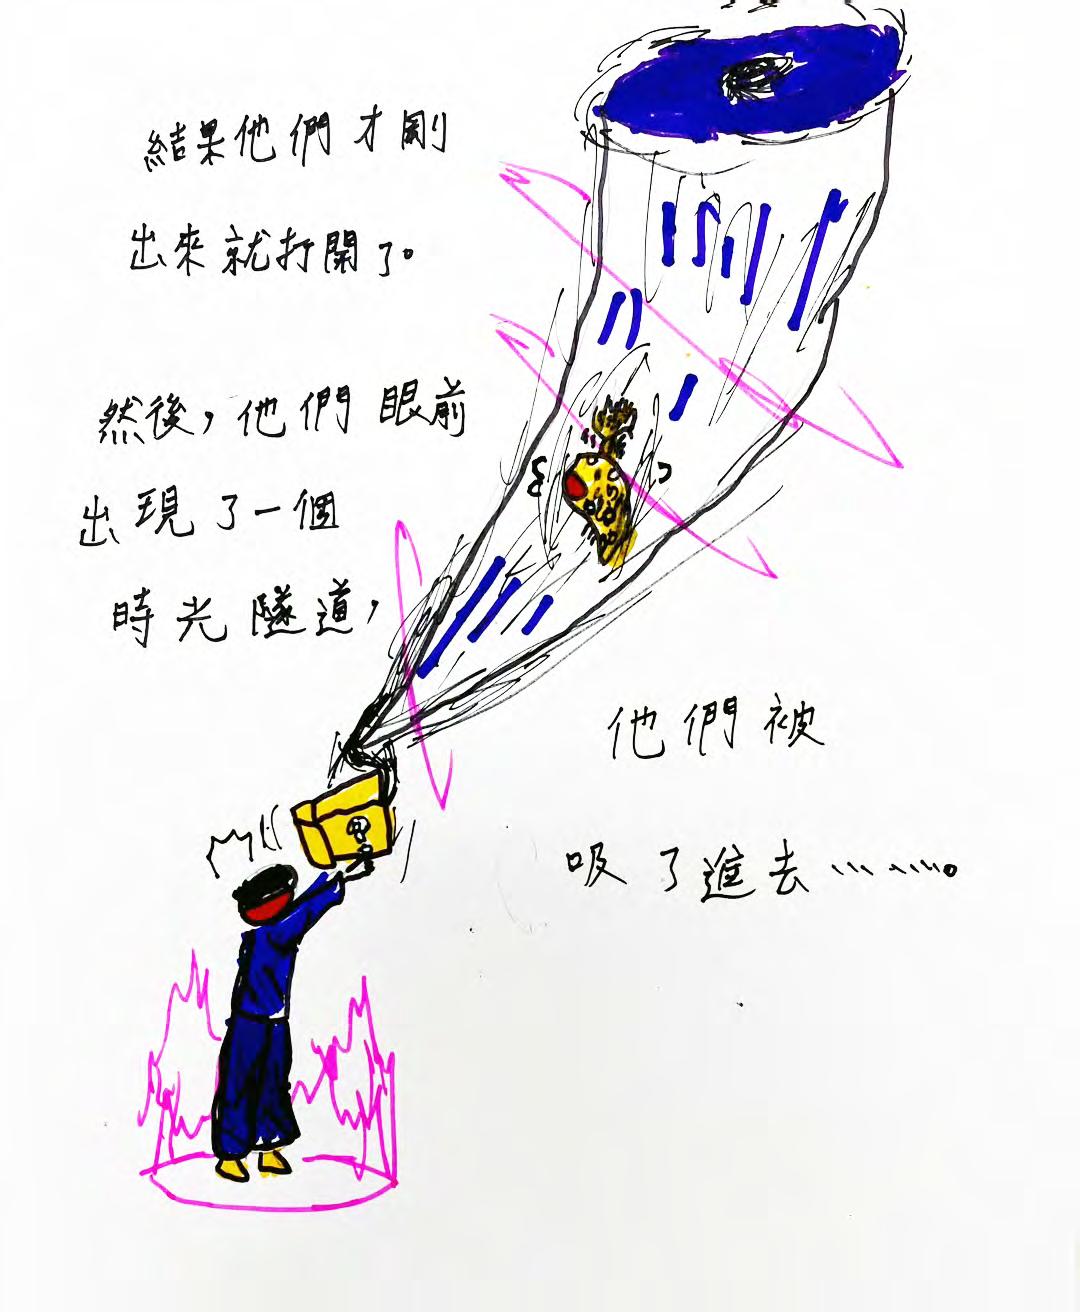 結果他們才剛
出來就打開了。
然後，他們眼前
出現了一個
時光隧道，
他們被
吸了進去………。